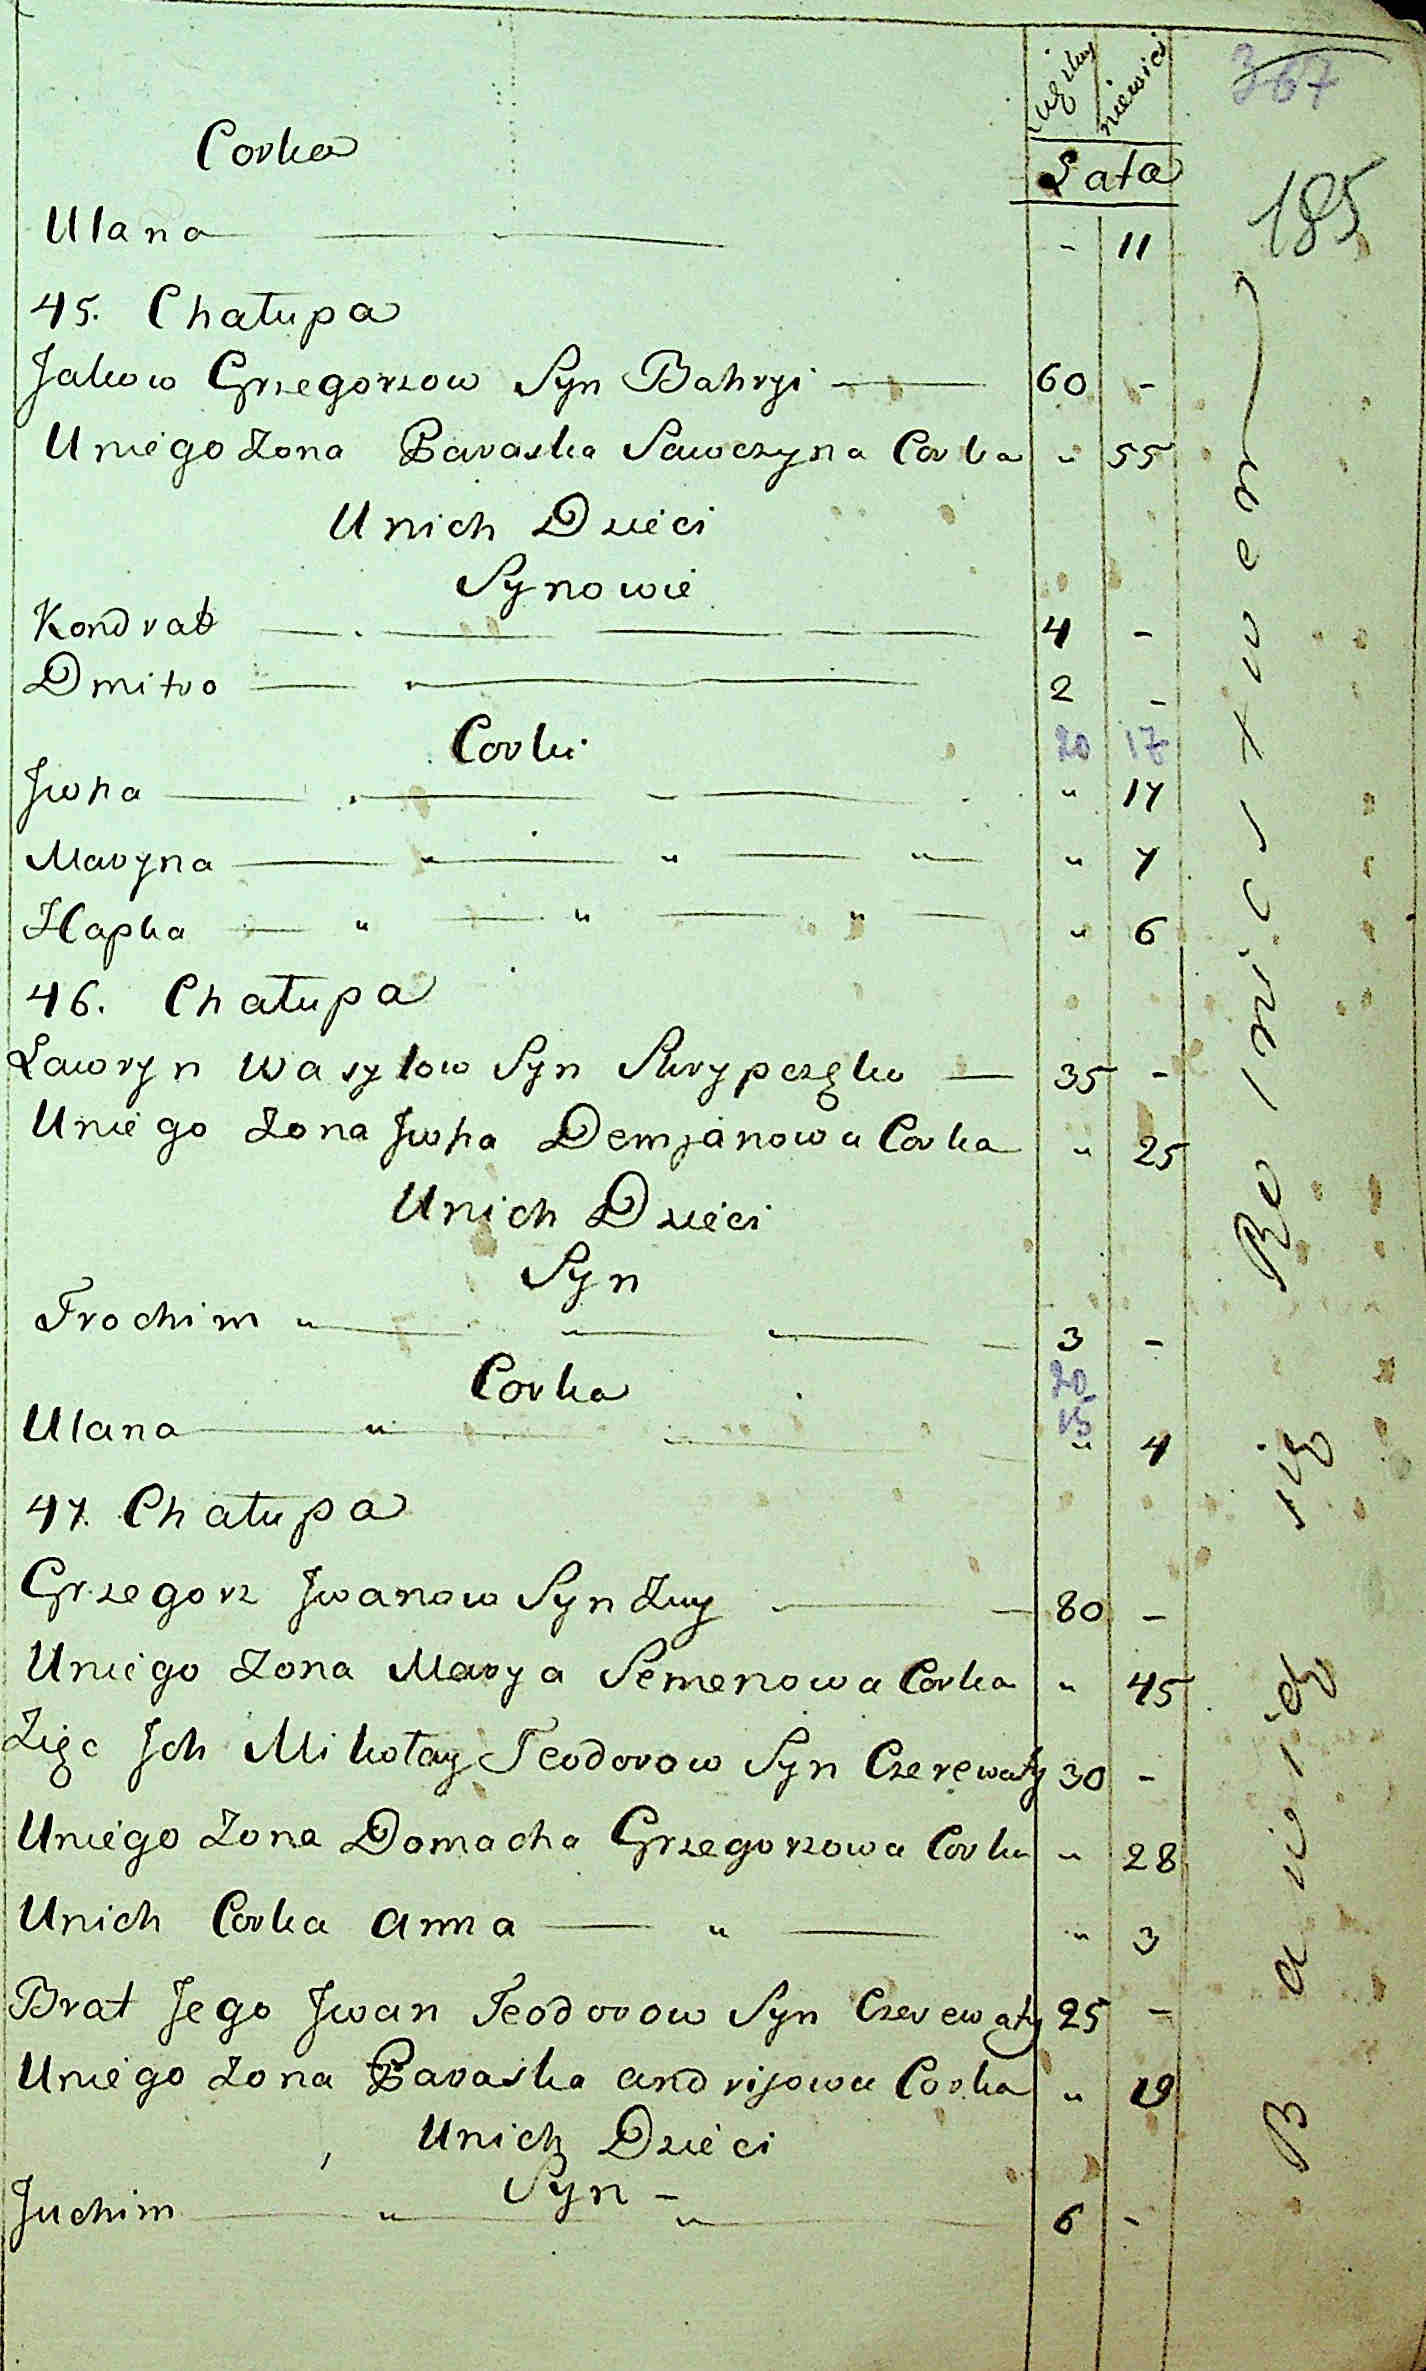 męzkey niewiesci
367
Lata
185
Corka
Ulana — - 11
45. Chałupa
Jakow Grzegorzow Syn Bahryi — 60 -
Uniego Zona Paraska Sawczyna Corka " 55
Unich Dzieci
Synowie
Kondrat — 4 -
Dmitro — 2 -
20 17
Corki
Jwha — " 17
Maryna — " 7
Hapka — " 6
46. Chałupa
Lawryn Wasylow Syn Skrypczęko — 35 -
Uniego Zona Jwha Demjanowa Corka " 25
Unich Dzieci
Syn
Trochim " — 3 -
20
15
Corka
Ulana — " 4
47. Chałupa
Grzegorz Jwanow Syn Zuy — 80 -
Uniego Zona Marya Semenowa Corka " 45
Zięc Jch Mikołay Teodorow Syn Czerewaty 30 -
Uniego Zona Domacha Grzegorzowa Corka " 28
Unich Corka Anna — " 3
Brat Jego Jwan Teodorow Syn Czerewaty 25 -
Uniego Zona Paraska Andrijowa Corka " 19
Unich Dzieci
Syn -
Juchim — 6 -
Bawią się Rolnictwem